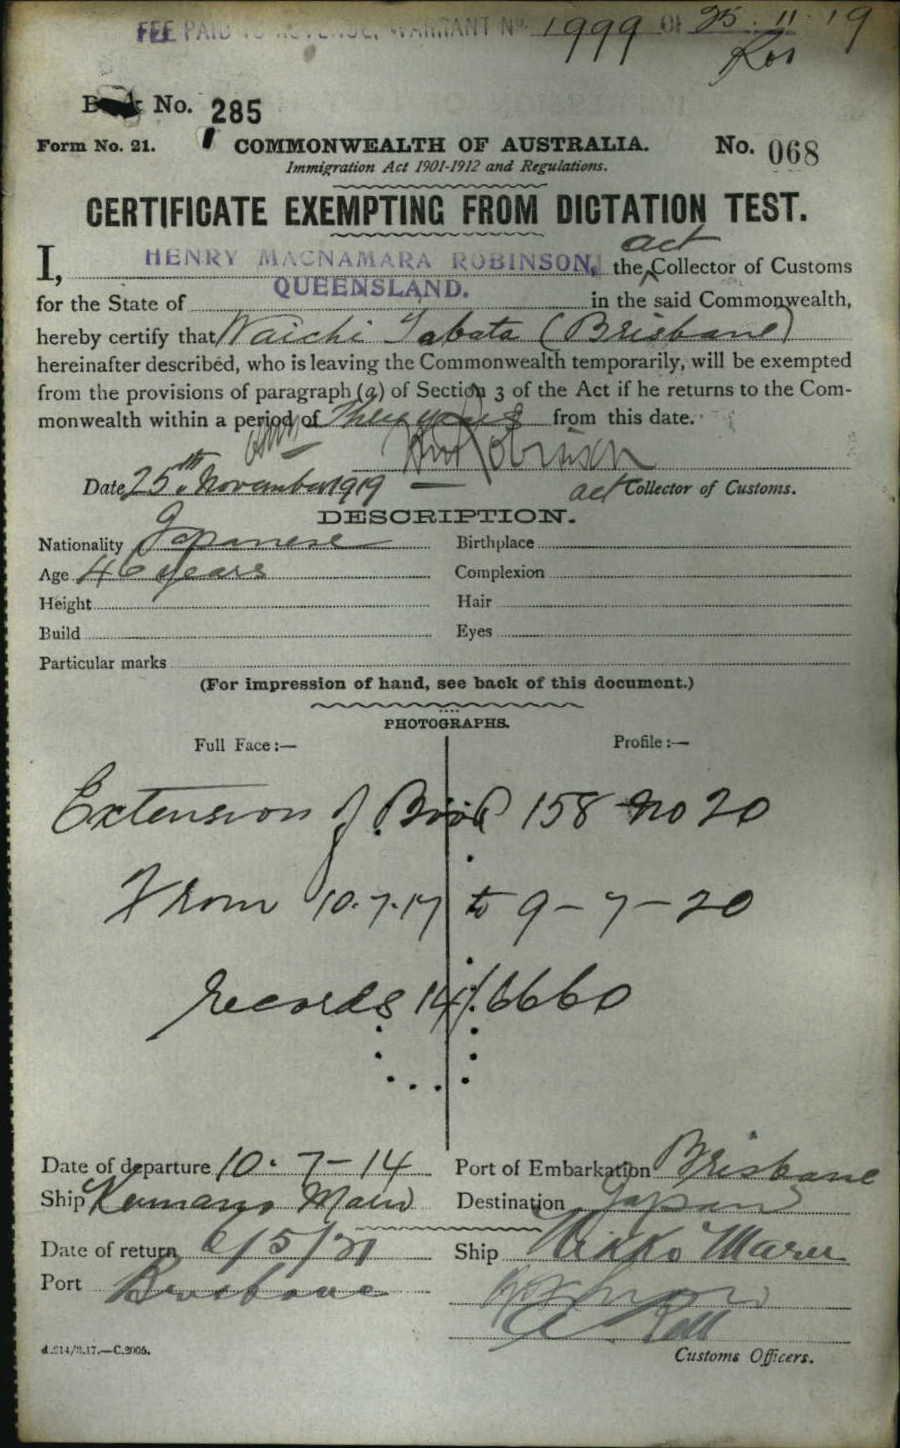 FEE PAID TO REVENUE, WARRANT No. 1999 OF 25.11.19
No. 285
Form No. 21.
COMMONWEALTH OF AUSTRALIA.
No. 068
Immigration Act 1901-1912 and Regulations.
CERTIFICATE EXEMPTING FROM DICTATION TEST.
act
I, HENRY MACNAMARA ROBINSON, the Collector of Customs
for the State of QUEENSLAND. in the said Commonwealth,
hereby certify that Waichi Tabata (Brisbane)
hereinafter described, who is leaving the Commonwealth temporarily, will be exempted
from the provisions of paragraph (a) of Section 3 of the Act if he returns to the Com-
monwealth within a period of Three years from this date.
HM Robinson
Date 25th November 1919 act Collector of Customs.
DESCRIPTION.
Nationality Japanese Birthplace
Age 46 years Complexion
Height Hair
Build Eyes
Particular marks
(For impression of hand, see back of this document.)
PHOTOGRAPHS.
Full Face:— Profile:—
Extension of Book 158 No 20
From 10.7.17 to 9-7-20
records 14/6660
Date of departure 10.7-14 Port of Embarkation Brisbane
Ship Kumano Maru Destination Japan
Date of return 6/5/21 Ship "Nikko Maru
Port Brisbane
Customs Officers.